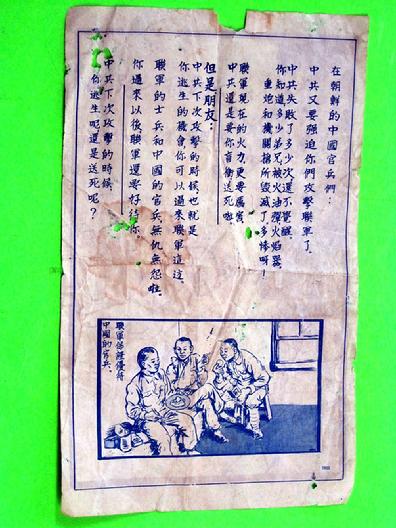 在朝鮮的中國官兵們：
中共又要强迫你們攻擊聯軍了。
中共失敗了多少次還不覺醒
你知道多少弟兄被火油彈火焰器、
重炮和機關搶所毀滅了，多慘呀！
聯軍現在的火力，更要厲害，
中共還是要你盲衝送死啦
但是朋友：
中共下次攻擊的時候，也就是
你逃生的機會，你可以過來聯軍這邊。
聯軍的士兵和中國的官兵無仇無怨啦。
你過來以後聯軍還要好待你。
中共下次攻擊的時候，
你逃生呢還是送死呢？
聯軍保護優待
中國的官兵。